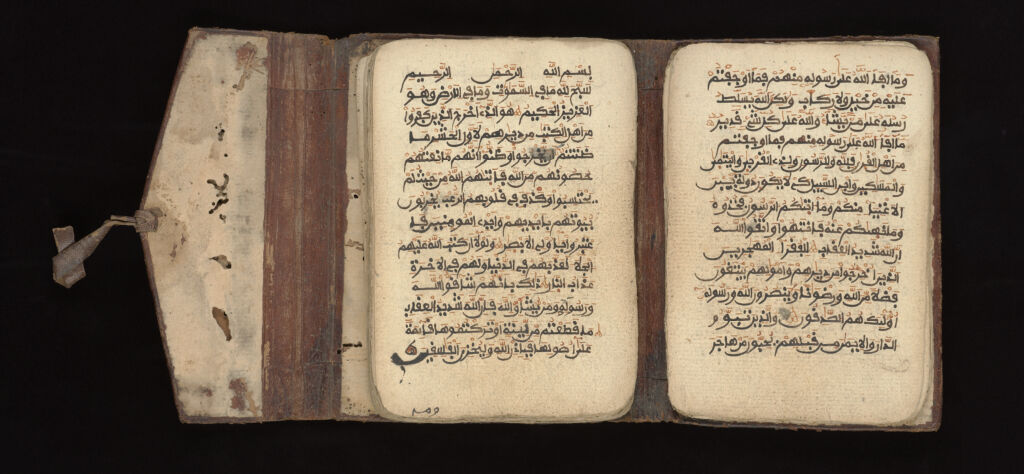 بسم الله الرحمن الرحيم
سبح لله ما في السموت وما في الارض وهو
العزيز الحكيم هو الذي اخرج الذين كفروا
من اهل الكتب من ديرهم لاول الحشر ما
ظننتم ان يخرجوا وظنوا انهم مانعتهم
حصونهم من الله فاتيهم الله من حيث لم
يحتسبوا وقذف في قلوبهم الرعب يخربون
بيوتهم بايديهم وايدي المومنين فا
عتبروا ياولي الابصر ولولا ان كتب الله عليهم
الجلاء لعذبهم في الدنيا ولهم في الاخرة
عذاب النار ذلك بانهم شاقوا الله
ورسوله ومن يشاق الله فان الله شديد العقاب
ما قطعتم من لينة او تركتموها قايمة
على اصولها فباذن الله وليخزي الفسقين
وما
وما افاء الله على رسوله منهم فما اوجفتم
عليه من خيل ولا ركاب ولكن الله يسلط
رسله على من يشاء والله على كل شيء قدير
ما افاء الله على رسوله منهم فما اوجفتم
من اهل القرى فلله وللرسول ولذي القربى واليتمى
والمسكين وابن السبيل كي لا يكون دولة بين
الاغنياء منكم وما اتيكم الرسول فخذوه
وما نهيكم عنه فانتهوا واتقوا الله
ان الله شديد العقاب للفقراء المهجرين
الذين اخرجوا من ديرهم واموالهم يبتغون
فضلا من الله ورضونا وينصرون الله ورسوله
اوليك هم الصدقون والذين تبوءو
الدار والايمن من قبلهم يحبون من هاجر